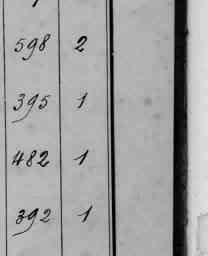 598 2
395 1
482 1
392 1